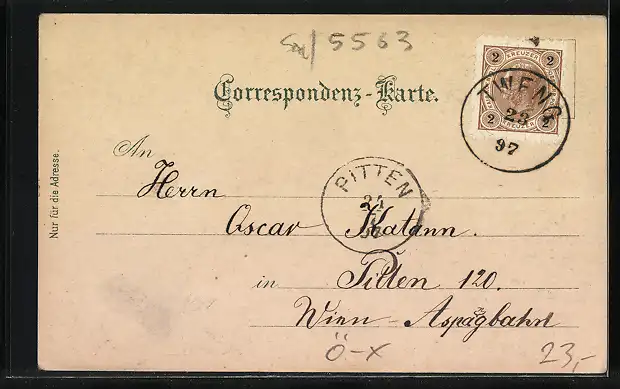 5563
Correspondenz-Karte.
2 KREUZER 2
2 KREUZER 2
TWENG
23
97
Nur für die Adresse.
An
Herrn
PITTEN
24
Oscar Katann.
in Pitten 120.
Wien-Aspangbahn
Ö-X
23,-